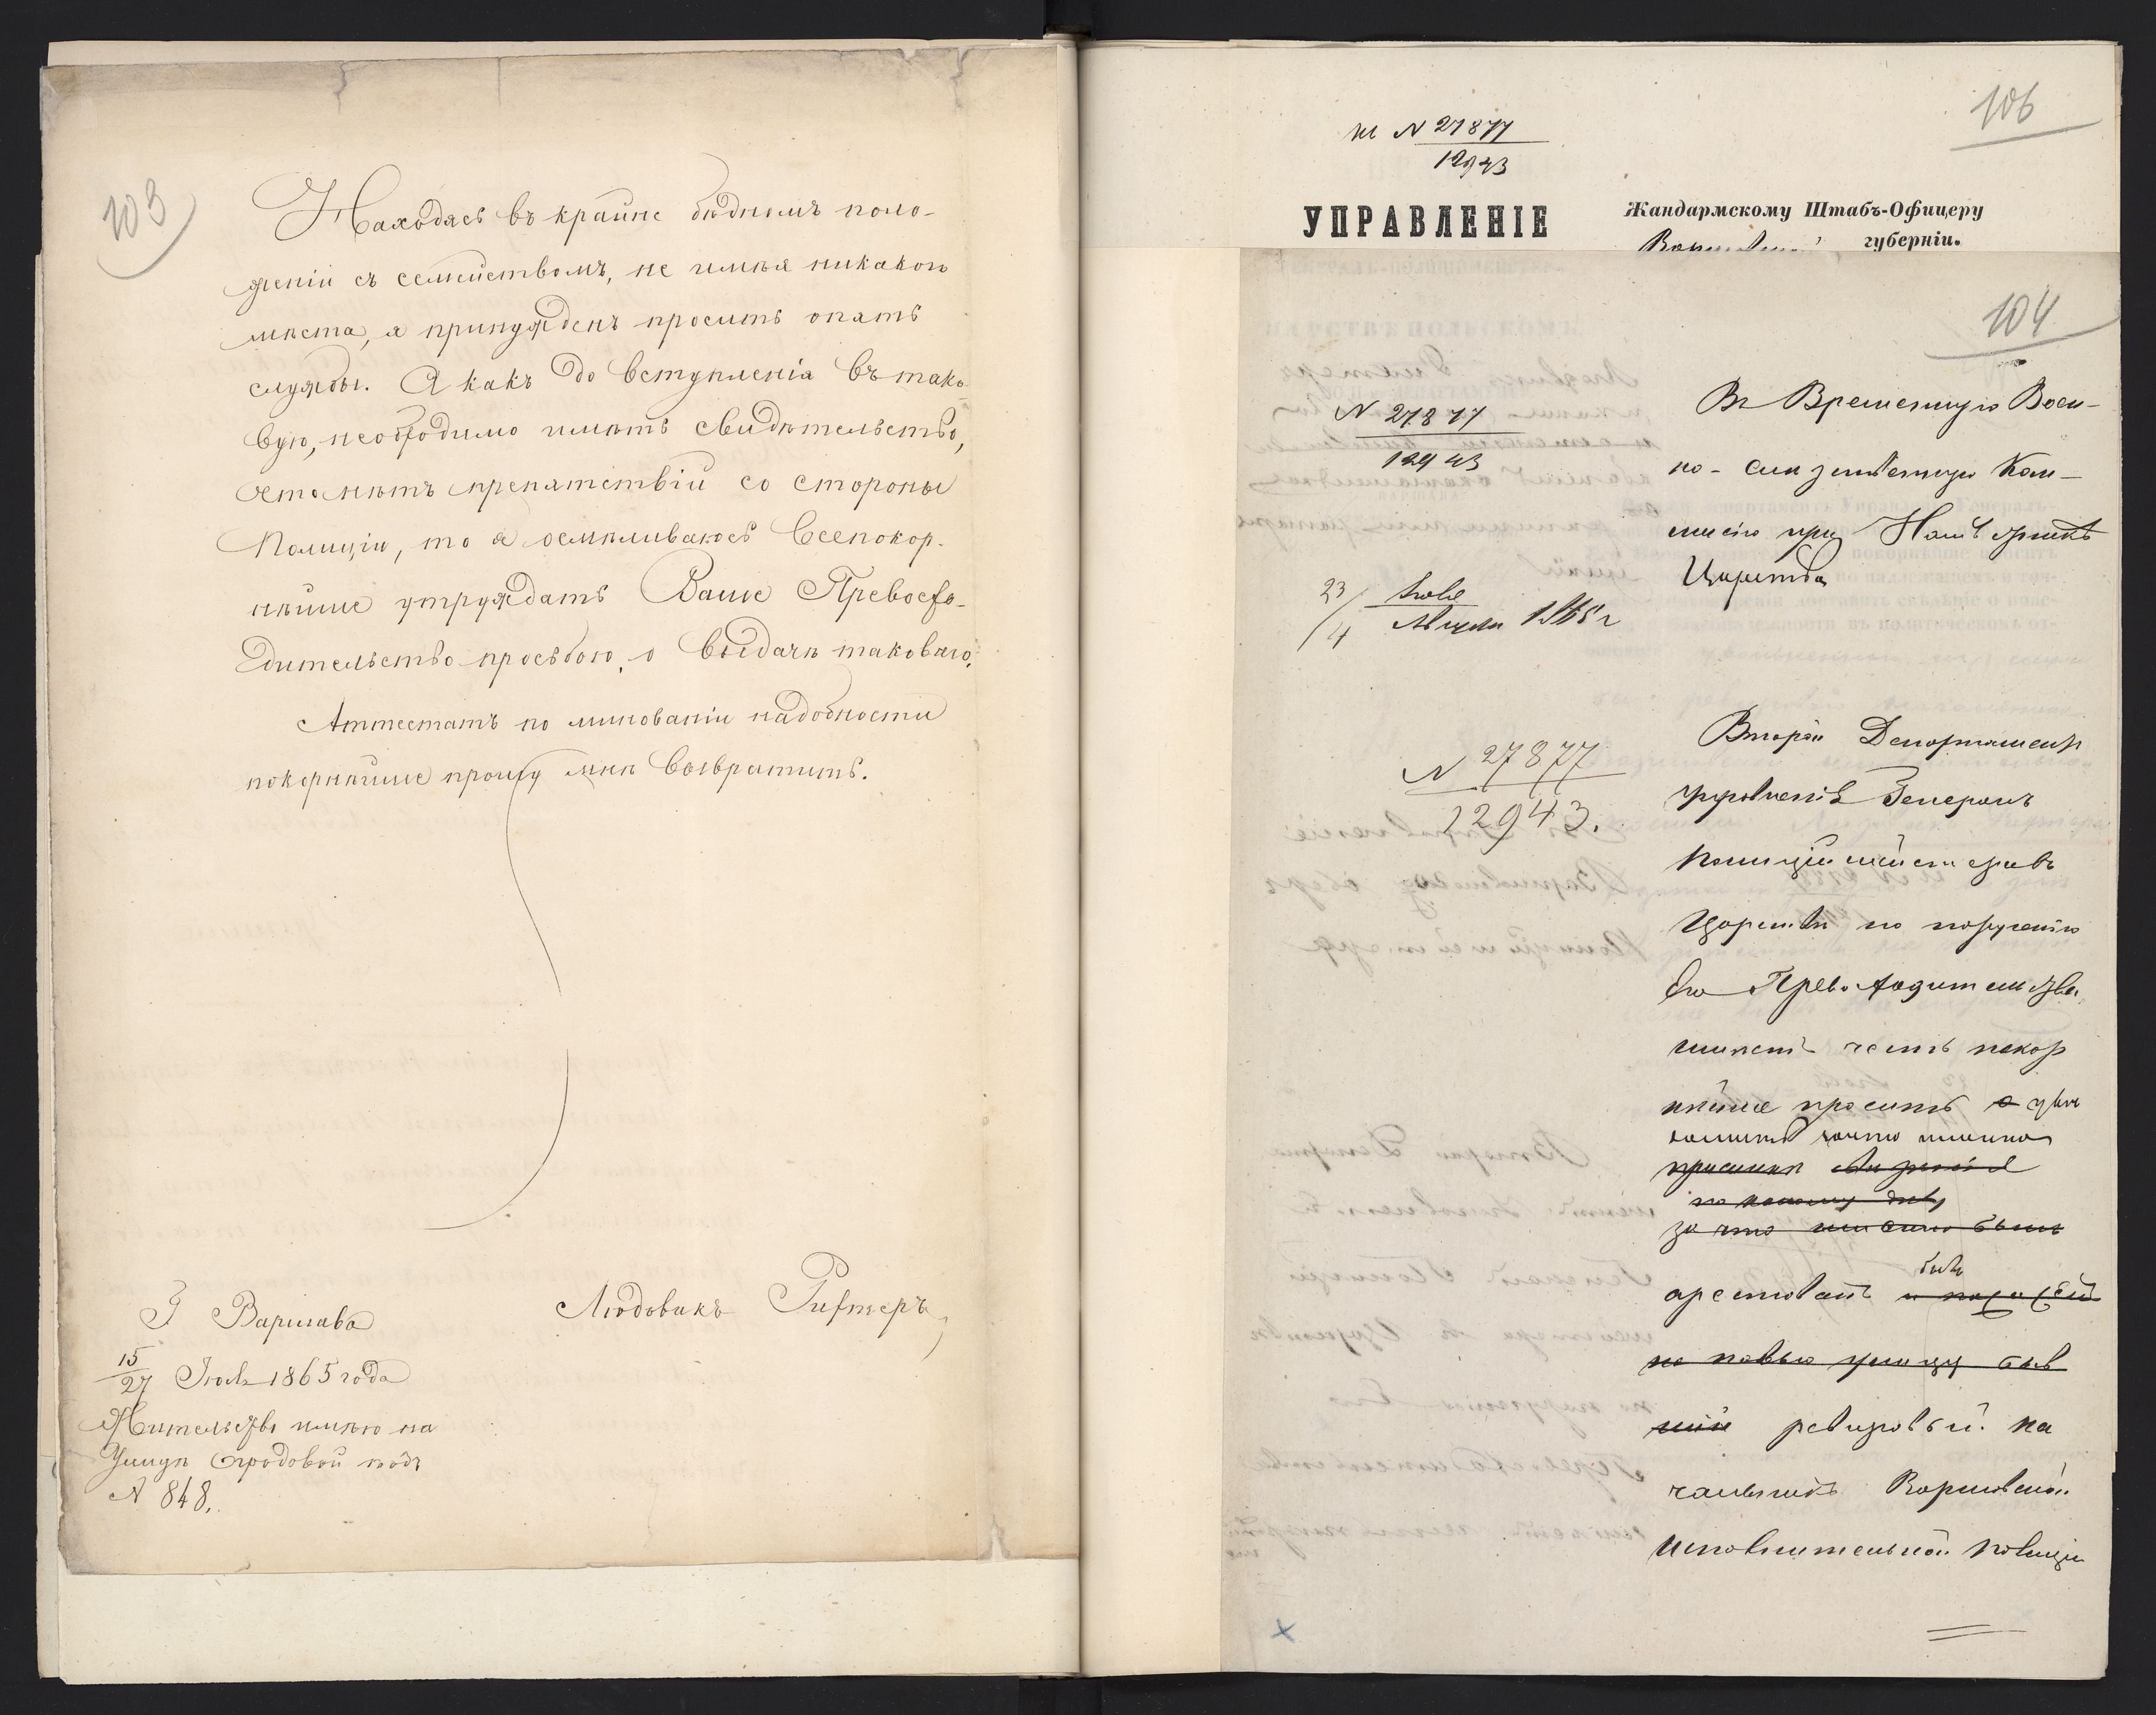 103
Находясь въ крайне бѣдномъ поло-
женіи съ семействомъ, не имѣя никакого
мѣста, я принужденъ просить опять
службы. А какъ до вступленія въ тако-
вую, необходимо имѣть свидѣтельство,
что нѣтъ препятствій со стороны
Полиціи, то я осмѣливаюсь всепокор-
нѣйше утруждать Ваше Превосхо-
дительство просьбою, о выдачѣ таковаго.
Аттестатъ по минованіи надобности
покорнѣйше прошу мнѣ возвратить.
Людовикъ Рихтеръ
Г Варшава
15/27 Іюля 1865 года
Жительство имѣю на
Улицѣ Огродовой подъ
№ 848.
106
къ N 27877
12943
УПРАВЛЕНІЕ
Жандармскому Штабъ-Офицеру
губерніи.
104
N 27877
12943
23/4 Іюля
Августа 1865 г
Въ Временную Воен-
но-слѣдственную Ком-
мисію при Намѣстникѣ
Царства
N 27877
12943.
Второй Департаментъ
Управленія Генералъ
Полиціймейстера въ
Царствѣ по порученію
Его Превосходительства
имѣетъ честь покор
нѣйше просить о увѣ
за что именно былъ
былъ
арестованъ
ревировый на
чальникъ Варшавской
Исполнительной Полиціи